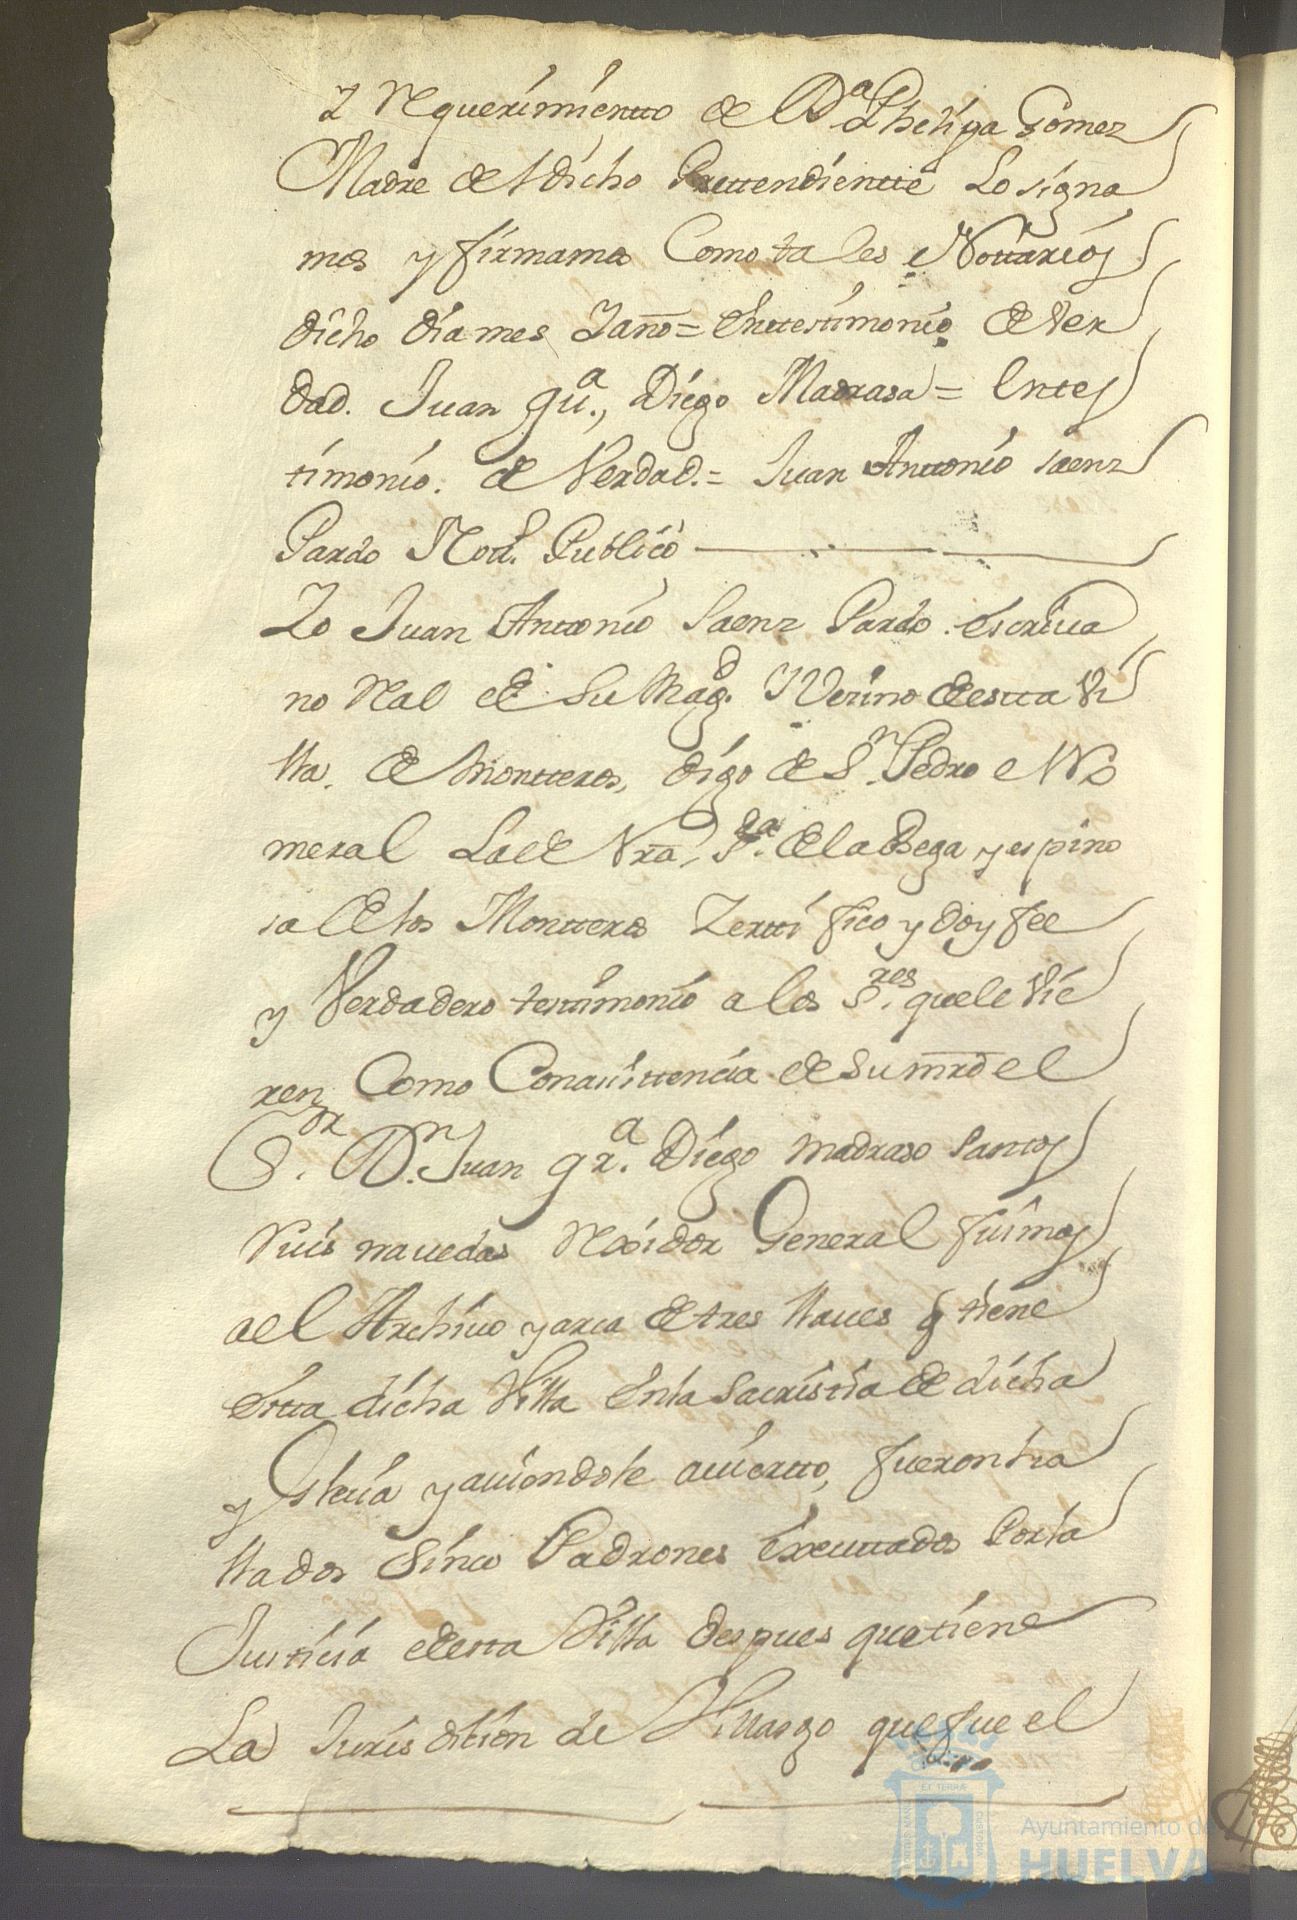 Y Requerimientto de Dª Phelipa Gomez
Madre del dicho Prettendientte Lo signa
mos y firmamos Como tales Nottarios
dicho dia mes Y año = En ttestimonio de Ver
dad. Juan gª., Diego Madrasa = En tes
timonio. de Verdad. = Juan Anttonio saenz
Pardo Notº. Publico
Yo Juan Anttonio Saenz Pardo. escriva
no Real de Su Magd. Y Vezino de estta Vi
lla. de Montteros, digo de Sn. Pedro el Ro
meral La de Nra, Sra. de la Bega y espino
sa de los Montteros Zertti fico y doy fee
y Verdadero testimonio a los Sres. que le vie
ren Como Con assisttencia de su mrd el
Sor. Dn. Juan grª. Diego madraso santos
Ruis navedas Rexidor General fuimos
a el Archivo y arca de tres llaves q tiene
Estta dicha Villa En la Sacristia de dicha
y Glecia y aviendole aviertto, fueron ha
llados Sinco Padrones Executtados Por la
Justicia de esta Villa despues que tiene
La Jurisdition de Villasgo que fue el
Ayuntamiento de
HUELVA